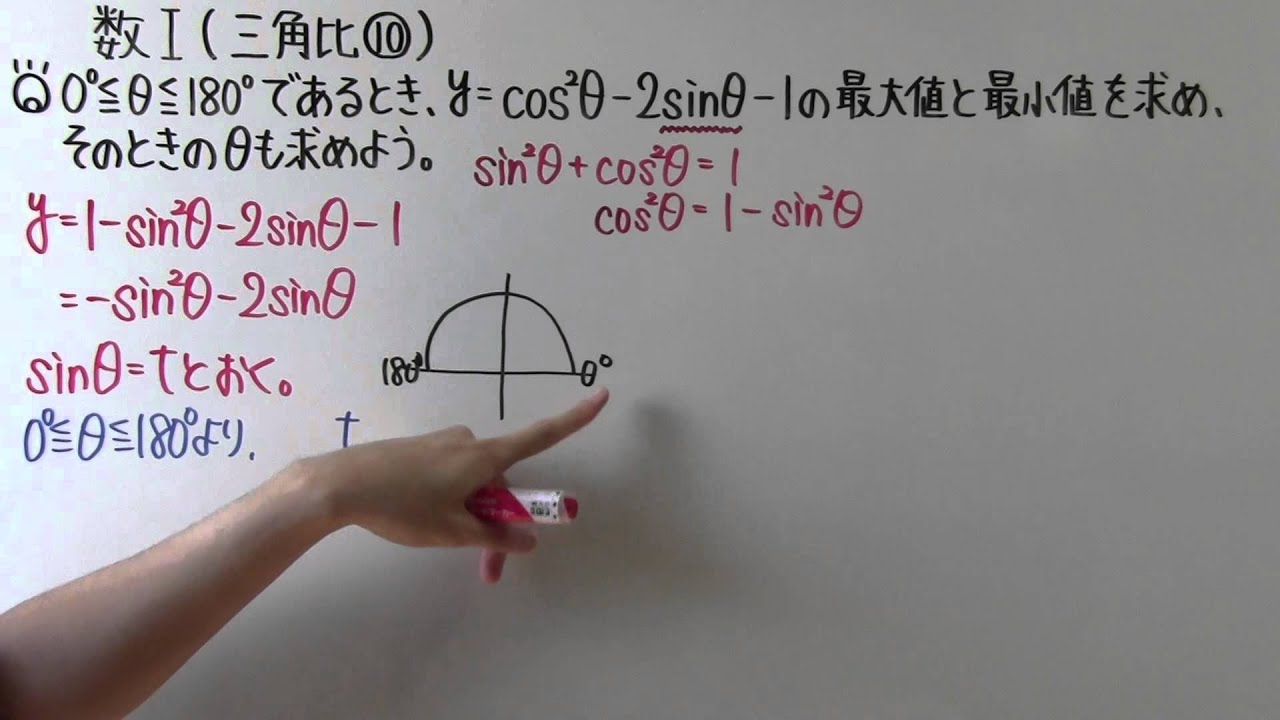 数I(三角比⑩)
0°≦θ≦180°であるとき、y=cos²θ-2sinθ-1の最大値と最小値を求め、
そのときのθも求めよう。
sin²θ+cos²θ=1
cos²θ=1-sin²θ
y=1-sin²θ-2sinθ-1
=-sin²θ-2sinθ
sinθ=tとおく。
0°≦θ≦180°より、 t
180° 0°